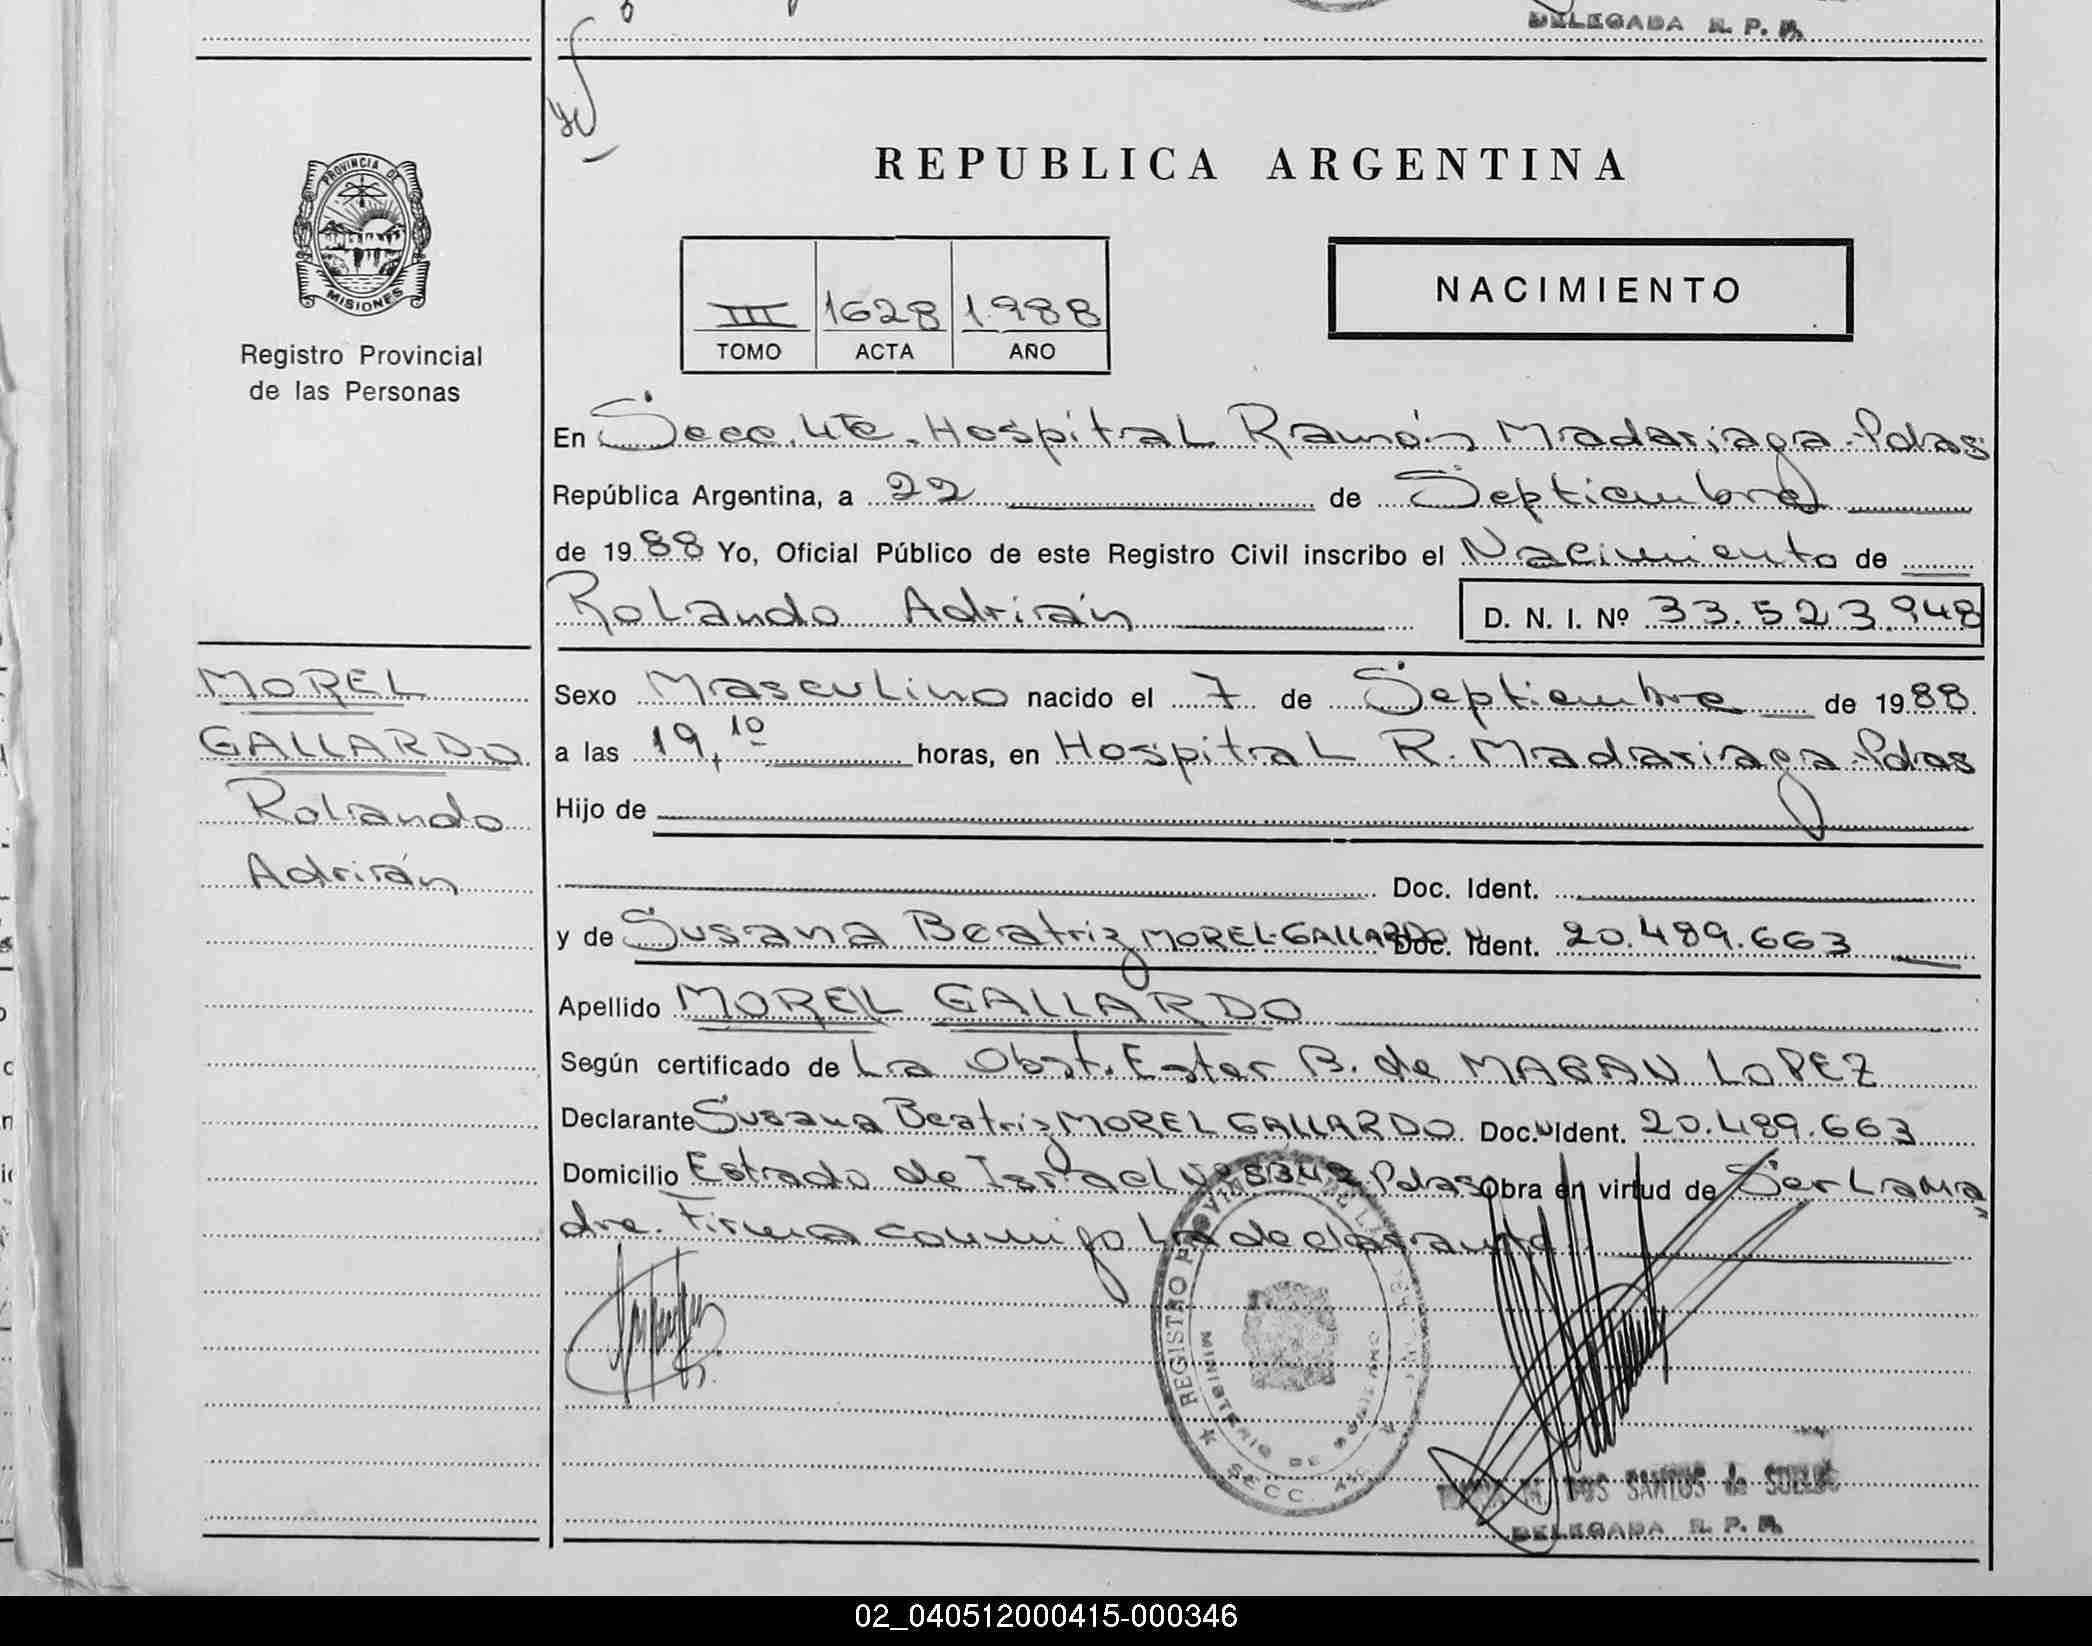 DELEGADA R. P. P.
REPUBLICA ARGENTINA
PROVINCIA DE
MISIONES
Registro Provincial
de las Personas
III 1628 1.988
TOMO ACTA AÑO
NACIMIENTO
En Secc. 4ta. Hospital Ramón Madariaga-Pdas
República Argentina, a 22 de Septiembre
de 1988 Yo, Oficial Público de este Registro Civil inscribo el Nacimiento de
Rolando Adrián D. N. I. Nº 33.523.948
MOREL
GALLARDO
Rolando
Adrián
Sexo Masculino nacido el 7 de Septiembre de 1988
a las 19,10 horas, en Hospital R. Madariaga-Pdas
Hijo de
Doc. Ident.
y de Susana Beatriz MOREL-GALLARDO Doc. Ident. 20.489.663
Apellido MOREL GALLARDO
Según certificado de La Obst. Ester B. de LOPEZ
Declarante Susana Beatriz MOREL GALLARDO Doc. Ident. 20.489.663
Domicilio Estado de Israel Nº Pdas Obra en virtud de Ser La Ma
dre. Firma conmigo La declarante
REGISTRO
MINISTERIO DE
SECC.
DOS SANTOS de
DELEGADA R. P. P.
02_040512000415-000346